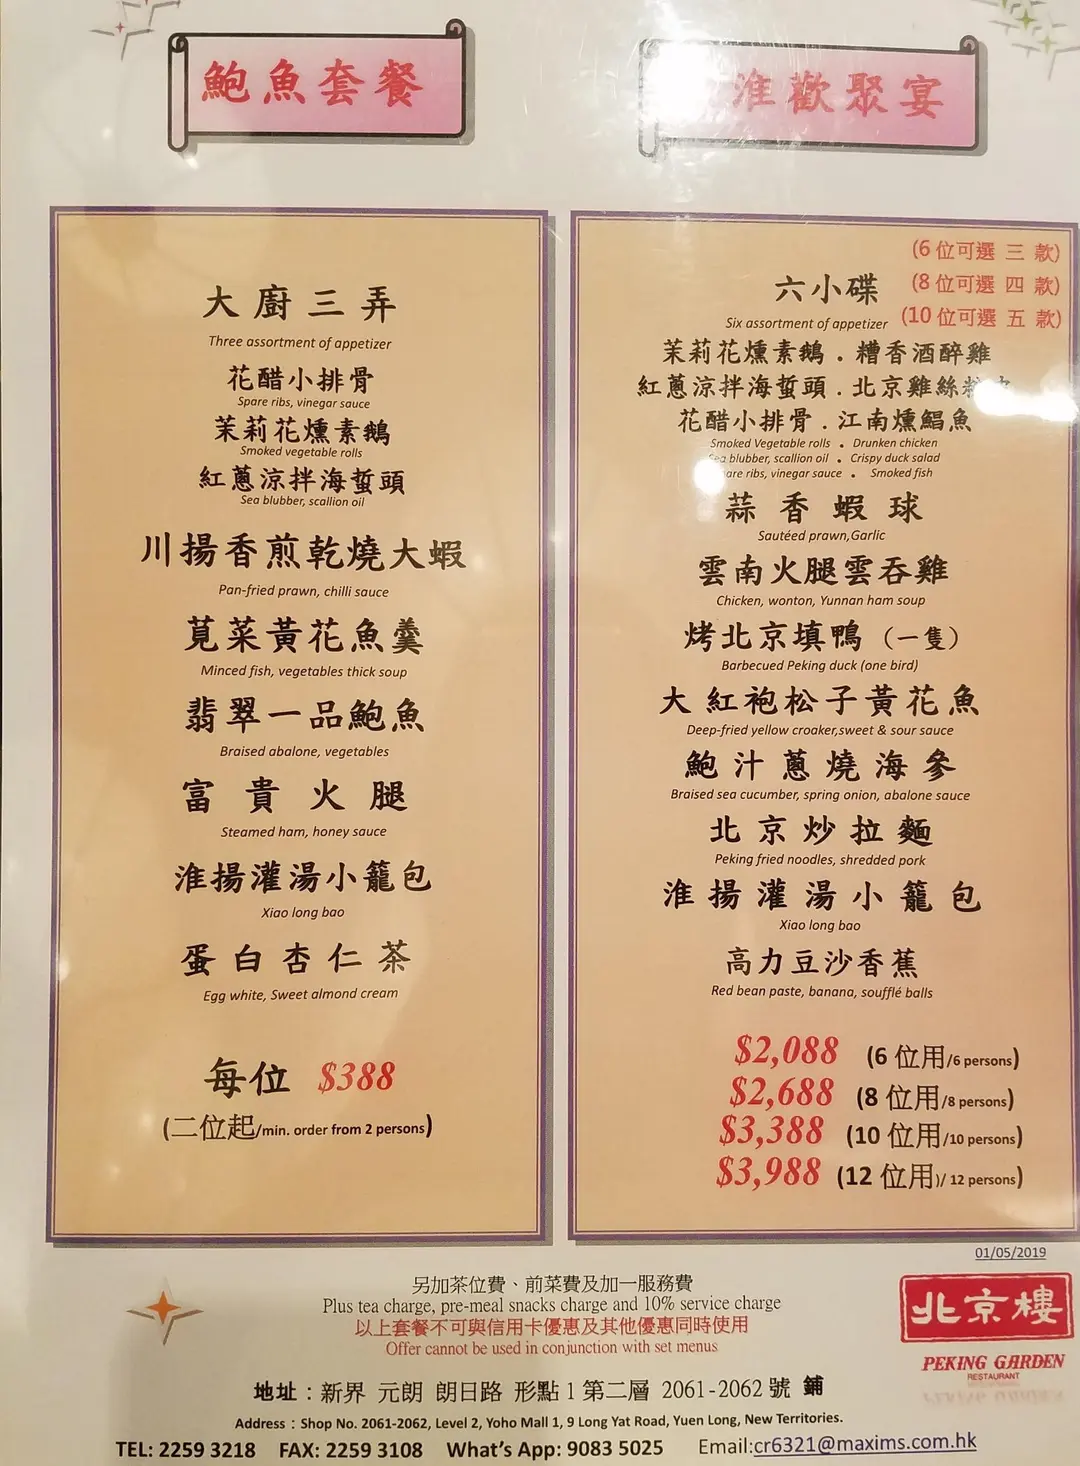 鮑魚套餐
大廚三弄
Three assortment of appetizer
花醋小排骨
Spare ribs, vinegar sauce
茉莉花燻素鵝
Smoked vegetable rolls
紅蔥涼拌海蜇頭
Sea blubber, scallion oil
川揚香煎乾燒大蝦
Pan-fried prawn, chilli sauce
莧菜黃花魚羹
Minced fish, vegetables thick soup
翡翠一品鮑魚
Braised abalone, vegetables
富貴火腿
Steamed ham, honey sauce
淮揚灌湯小籠包
Xiao long bao
蛋白杏仁茶
Egg white, Sweet almond cream
每位 $388
(二位起/min. order from 2 persons)
淮歡聚宴
(6 位可選 三 款)
六小碟 (8 位可選 四 款)
Six assortment of appetizer (10 位可選 五 款)
茉莉花燻素鵝 . 糟香酒醉雞
紅蔥涼拌海蜇頭 . 北京雞絲
花醋小排骨 . 江南燻鯧魚
Smoked Vegetable rolls . Drunken chicken
Sea blubber, scallion oil . Crispy duck salad
ribs, vinegar sauce . Smoked fish
蒜香蝦球
Sautéed prawn,Garlic
雲南火腿雲吞雞
Chicken, wonton, Yunnan ham soup
烤北京填鴨 (一隻)
Barbecued Peking duck (one bird)
大紅袍松子黃花魚
Deep-fried yellow croaker,sweet & sour sauce
鮑汁蔥燒海參
Braised sea cucumber, spring onion, abalone sauce
北京炒拉麵
Peking fried noodles, shredded pork
淮揚灌湯小籠包
Xiao long bao
高力豆沙香蕉
Red bean paste, banana, soufflé balls
$2,088 (6 位用/6 persons)
$2,688 (8 位用/8 persons)
$3,388 (10 位用/10 persons)
$3,988 (12 位用)/ 12 persons)
01/05/2019
另加茶位費、前菜費及加一服務費
Plus tea charge, pre-meal snacks charge and 10% service charge
以上套餐不可與信用卡優惠及其他優惠同時使用
Offer cannot be used in conjunction with set menus
北京樓
PEKING GARDEN
RESTAURANT
地址：新界 元朗 朗日路 形點 1 第二層 2061-2062 號 鋪
Address : Shop No. 2061-2062, Level 2, Yoho Mall 1, 9 Long Yat Road, Yuen Long, New Territories.
TEL: 2259 3218 FAX: 2259 3108 What's App: 9083 5025 Email:cr6321@maxims.com.hk